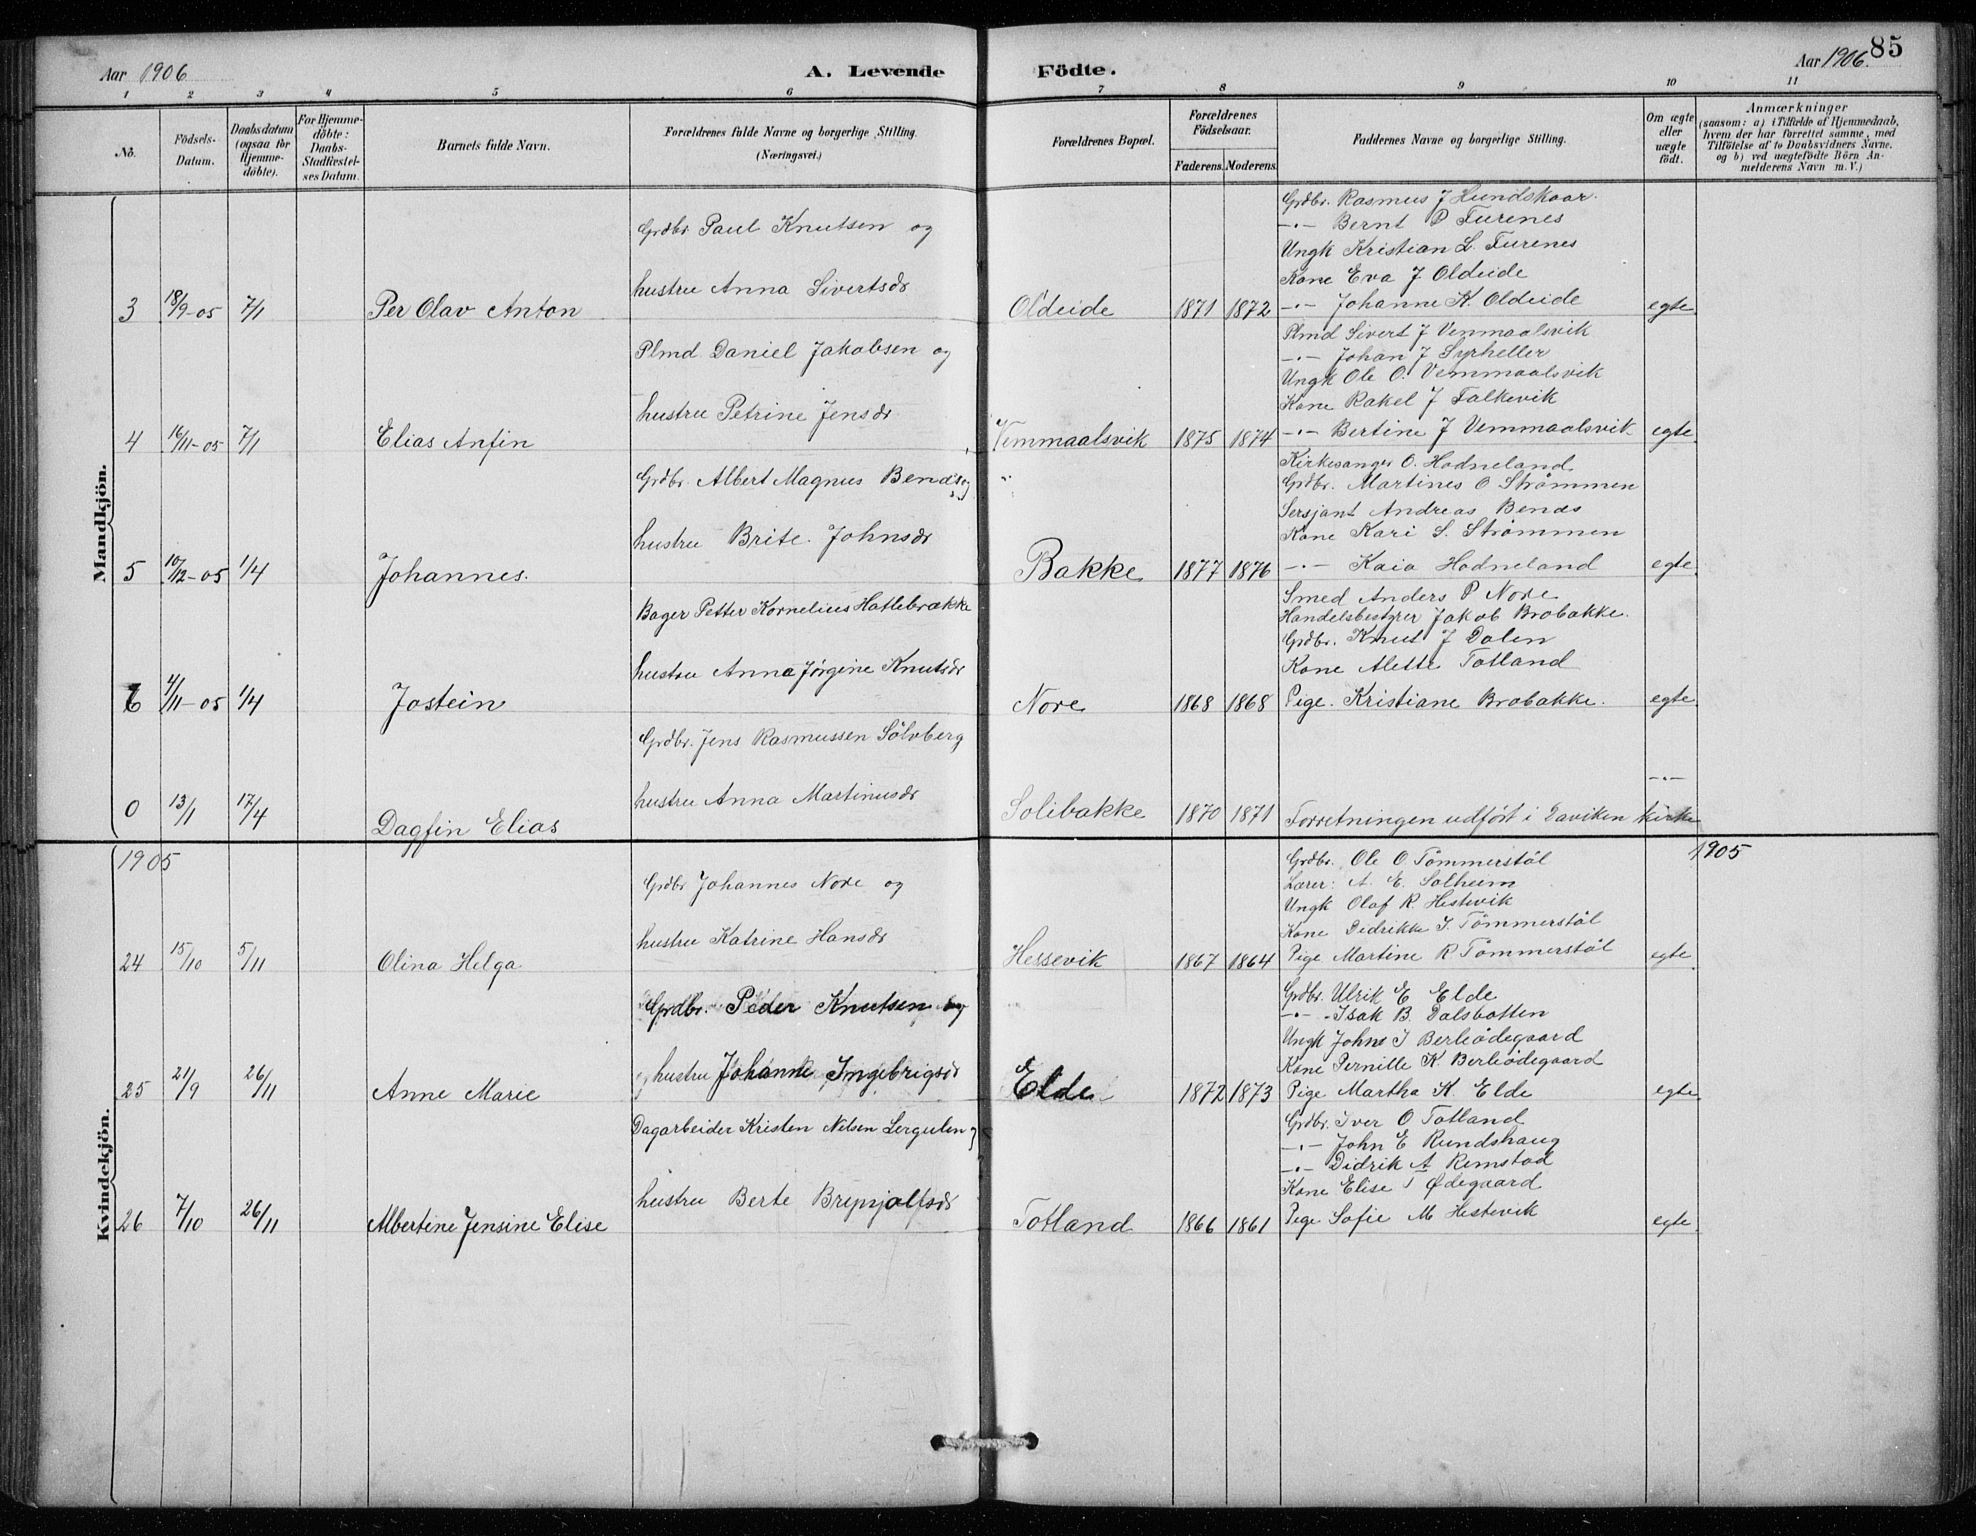 Aar 1906
A. Levende
Födte.
Aar 1906.
85
1 2 3 4 5 6 7 8 9 10 11
No.
Födsels-Datum.
Daabsdatum (ogsaa for Hjemme-döbte).
For Hjemme-döbte: Daabs-Stadfæstel-ses Datum.
Barnets fulde Navn.
Forældrenes fulde Navne og borgerlige Stilling. (Næringsvei.)
Forældrenes Bopæl.
Forældrenes Födselsaar.
Faderens. Moderens.
Faddernes Navne og borgerlige Stilling.
Om ægte eller uægte födt.
Anmærkninger
(saasom: a) i Tilfælde af Hjemmedaab,
hvem der har forrettet samme, med
Tilföielse af to Daabsvidners Navne.
og b) ved uægtefödte Börn An-
melderens Navn m. V.)
Mandkjön.
Grdbr. Paul Knutsen og
hustru Anna Sivertsdr
3 18/9-05 7/1 Per Olav Anton Oldeide 1871 1872 egte
Grdbr. Rasmus J Hundskaar.
-"- Bernt P Furenes
Ungk Kristian L. Furenes
Kone Eva J Oldeide
-"- Johanne K. Oldeide
Plmd Daniel Jakobsen og
hustru Petrine Jensdr
4 16/11-05 7/1 Elias Anfin Vemmaalsvik 1875 1874 egte.
Plmd Sivert J Vemmaalsvik
-"- Johan J Syrheller
Ungk Ole O. Vemmaalsvik
Kone Rakel J Falkevik
-"- Bertine J Vemmaalsvik
Grdbr. Albert Magnus Bends og
hustru Brite. Johnsdr
5 10/12-05 1/4 Johannes. Bakke 1877 1876 egte.
Kirkesanger O. Hodneland
Grdbr. Martines O Strömmen
Sersjant Andreas Bends
Kone Kari S. Strömmen
-"- Kaia Hodneland
Bager Petter Kornelius Hatlebrække
hustru Anna Jörgine Knutsdr
6 4/11-05 1/4 Jostein Nore 1868 1868 egte.
Smed Anders P Nore
Handelsbestyrer Jakob Brobakke.
Grdbr. Knut J Dalen
Kone Alette Totland
Pige. Kristiane Brobakke.
Grdbr. Jens Rasmussen Sölvberg
hustru Anna Martinusdr
0 13/1 17/4 Dagfin Elias Solibakke 1870 1871 -"-
Forretningen udført i Laviken kirke
Kvindekjön.
1905
1905
Grdbr Johannes Nore og
hustru Katrine Hansdr
24 15/10 5/11 Olina Helga Hessevik 1867 1864 egte.
Grdbr. Ole O. Tömmerstöl
Lærer: A. E. Solheim
Ungk Olaf R Hestevik
Kone Didrikke S. Tömmerstöl
Pige Martine R Tömmerstöl
Grdbr. Peder Knutsen og
hustru Johanne Ingebrigsdr
25 21/9 26/11 Anne Marie Elde 1872 1873 egte
Grdbr. Ulrik E Elde
-"- Isak B. Dalsbotten
Ungk Johns J Berleödegaard
Kone Pernille K. Berleödegaard
Pige Martha K. Elde
Dagarbeider Kristen Nelsen Lergulen
hustru Berte Brynjolfsdr
26 7/10 26/11 Albertine Jensine Elise Totland 1866 1861 egte.
Grdbr. Iver O Totland
-"- John E Rundshaug
-"- Didrik A Rimstad
Kone Elise T Ødegaard
Pige Sofie M Hestevik